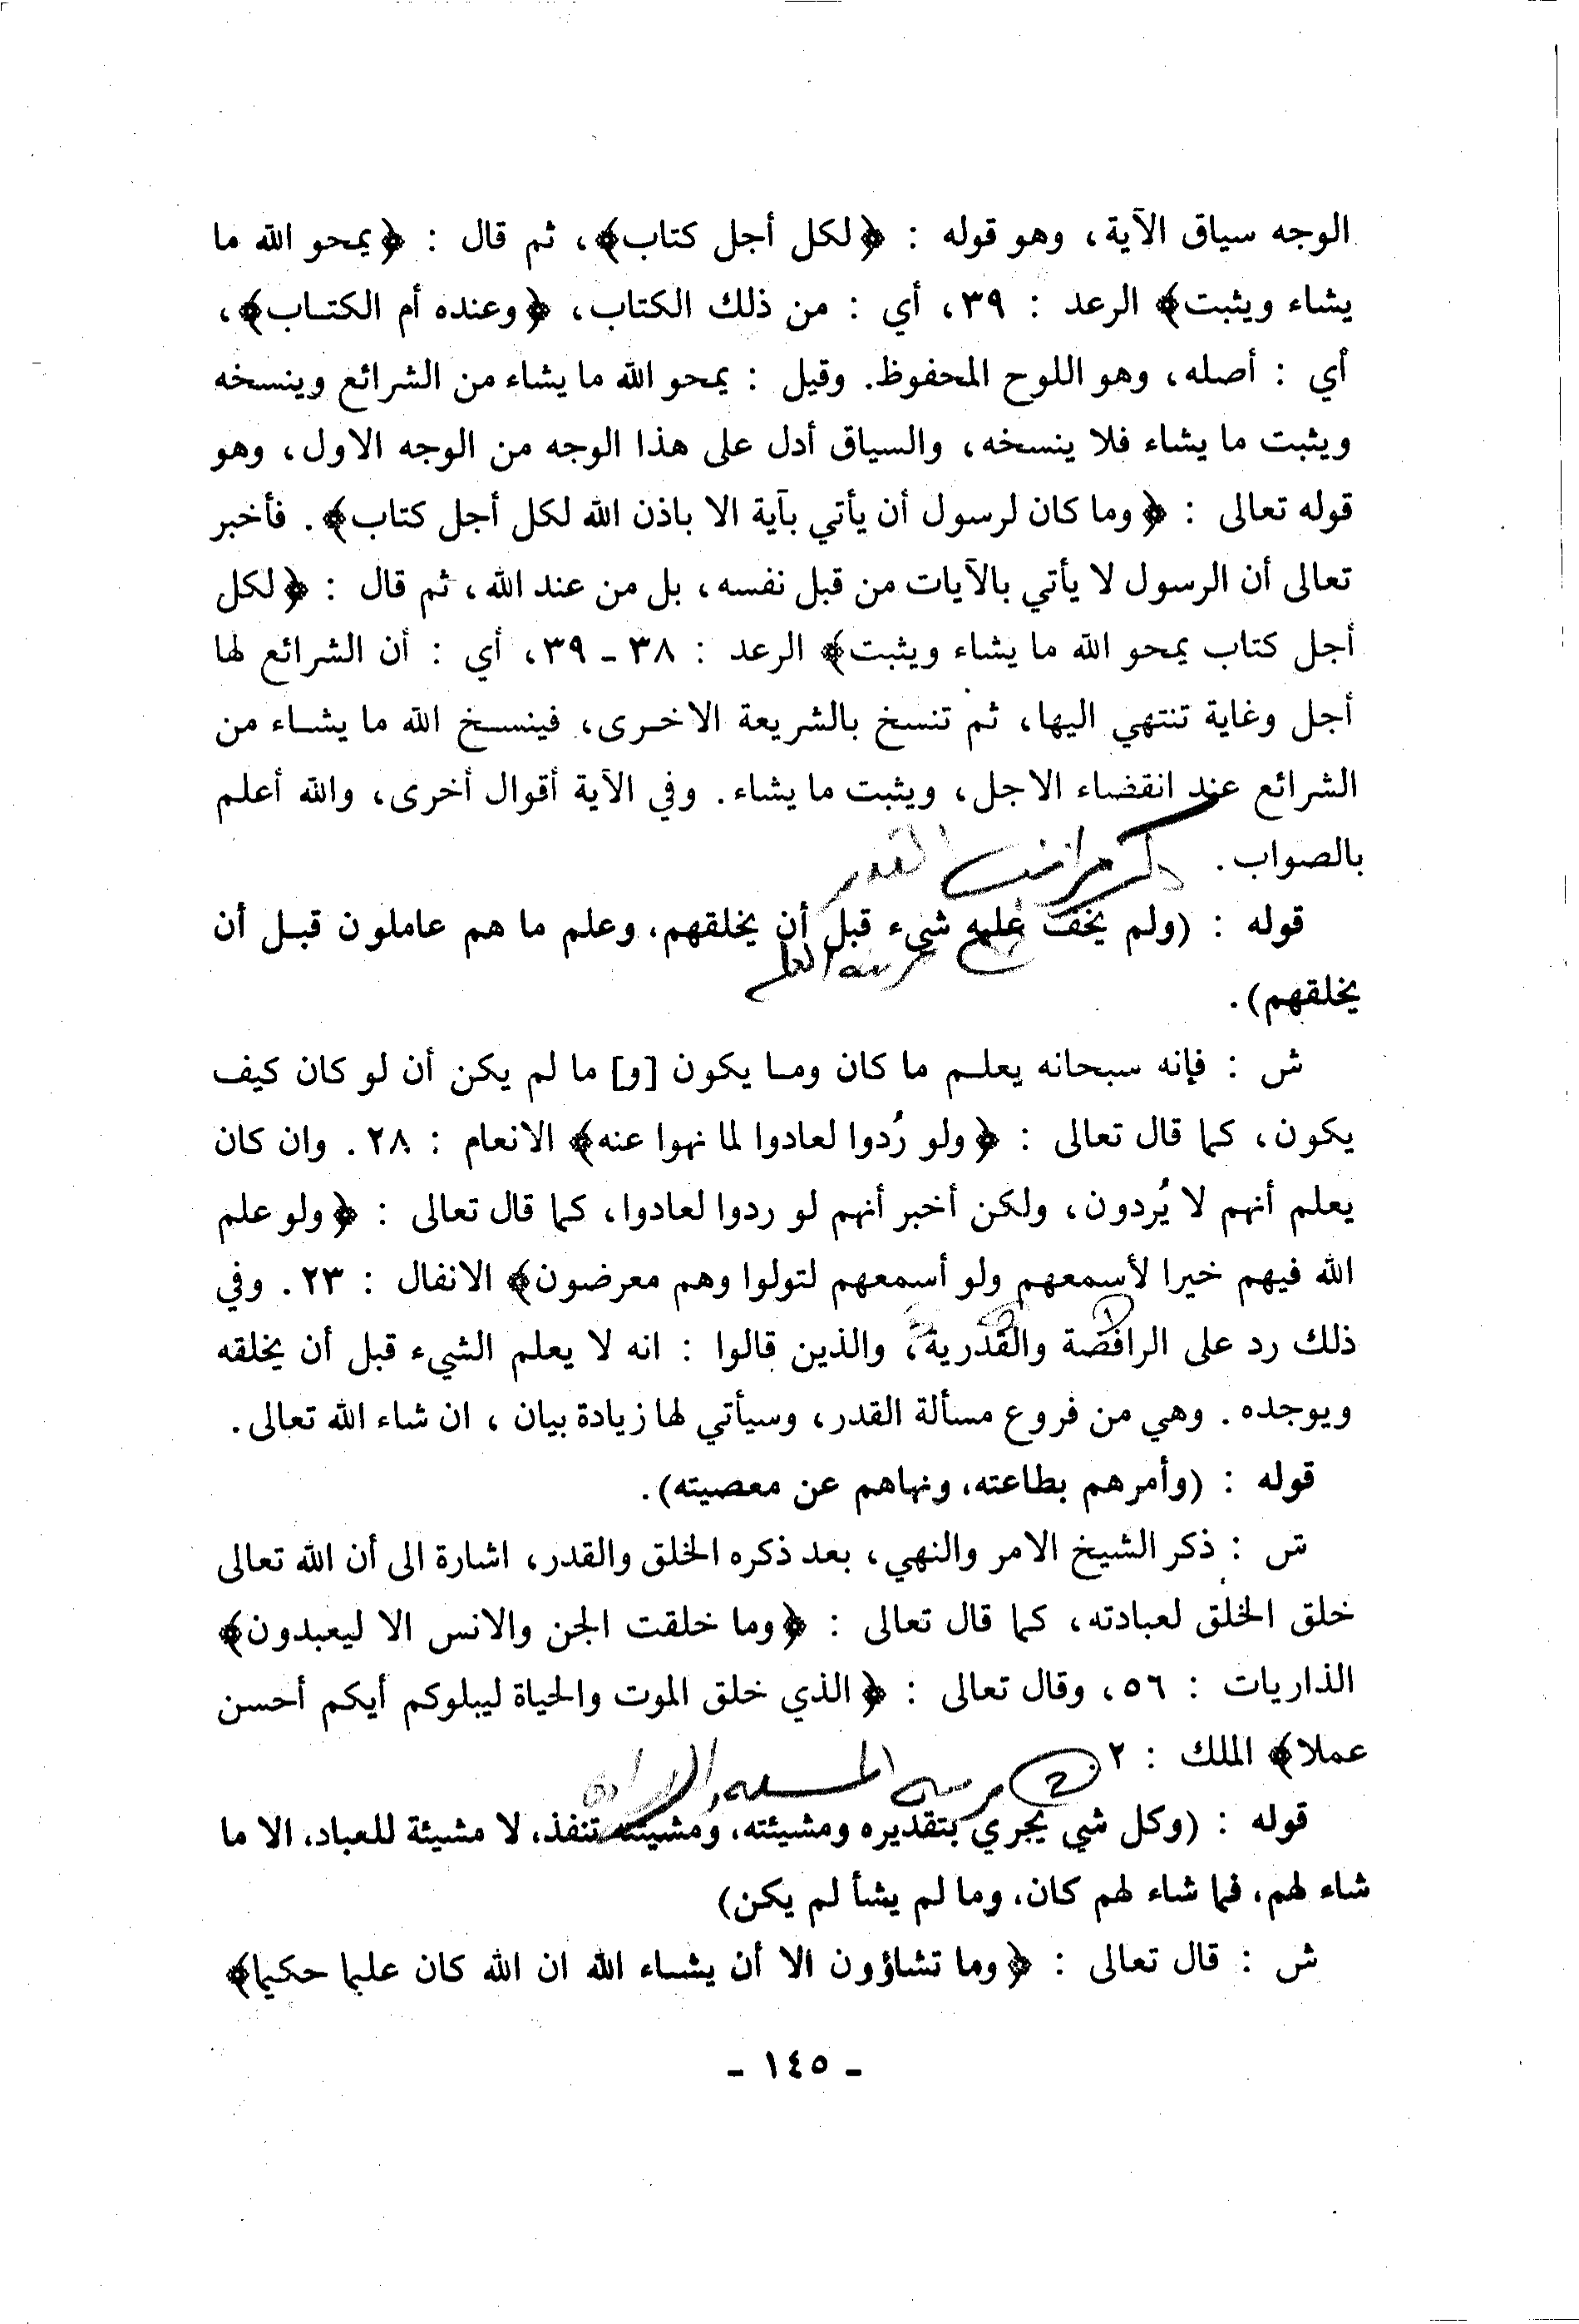 الوجه سياق الآية، وهو قوله : ﴿لكل أجل كتاب﴾، ثم قال : ﴿يمحو الله ما
يشاء ويثبت﴾ الرعد : ٣٩، أي : من ذلك الكتاب، ﴿وعنده أم الكتـاب﴾،
أي : أصله، وهو اللوح المحفوظ. وقيل : يمحو الله ما يشاء من الشرائع وينسخه
ويثبت ما يشاء فلا ينسخه، والسياق أدل على هذا الوجه من الوجه الاول، وهو
قوله تعالى : ﴿وما كان لرسول أن يأتي بآية الا باذن الله لكل أجل كتاب﴾. فأخبر
تعالى أن الرسول لا يأتي بالآيات من قبل نفسه، بل من عند الله، ثم قال : ﴿لكل
أجل كتاب يمحو الله ما يشاء ويثبت﴾ الرعد : ٣٨ ـ ٣٩، أي : أن الشرائع لها
أجل وغاية تنتهي اليها، ثم تنسخ بالشريعة الاخـرى، فينسـخ الله ما يشـاء من
الشرائع عند انقضاء الاجل، ويثبت ما يشاء. وفي الآية أقوال أخرى، والله أعلم
بالصواب.
ذكر مراتب القدر
قوله : (ولم يخف عليه شيء قبل أن يخلقهم، وعلم ما هم عاملون قبـل أن
مرتبة العلم
يخلقهم).
ش : فإنه سبحانه يعلـم ما كان ومـا يكون [و] ما لم يكن أن لو كان كيف
يكون، كما قال تعالى : ﴿ولو رُدوا لعادوا لما نهوا عنه﴾ الانعام : ٢٨. وان كان
يعلم أنهم لا يُردون، ولكن أخبر أنهم لو ردوا لعادوا، كما قال تعالى : ﴿ولو علم
الله فيهم خيرا لأسمعهم ولو أسمعهم لتولوا وهم معرضون﴾ الانفال : ٢٣. وفي
ذلك رد على الرافضة والقدرية، والذين قالوا : انه لا يعلم الشيء قبل أن يخلقه
ويوجده. وهي من فروع مسألة القدر، وسيأتي لها زيادة بيان، ان شاء الله تعالى.
قوله : (وأمرهم بطاعته، ونهاهم عن معصيته).
ش : ذكر الشيخ الامر والنهي، بعد ذكره الخلق والقدر، اشارة الى أن الله تعالى
خلق الخلق لعبادته، كما قال تعالى : ﴿وما خلقت الجن والانس الا ليعبدون﴾
الذاريات : ٥٦، وقال تعالى : ﴿الذي خلق الموت والحياة ليبلوكم أيكم أحسن
عملا﴾ الملك : ٢
قوله : (وكل شي يجري بتقديره ومشيئته، ومشيئته تنفذ، لا مشيئة للعباد، الا ما
شاء لهم، فما شاء لهم كان، وما لم يشأ لم يكن)
ش : قال تعالى : ﴿وما تشاؤون الا أن يشـاء الله ان الله كان عليما حكيما﴾
ـ ١٤٥ ـ